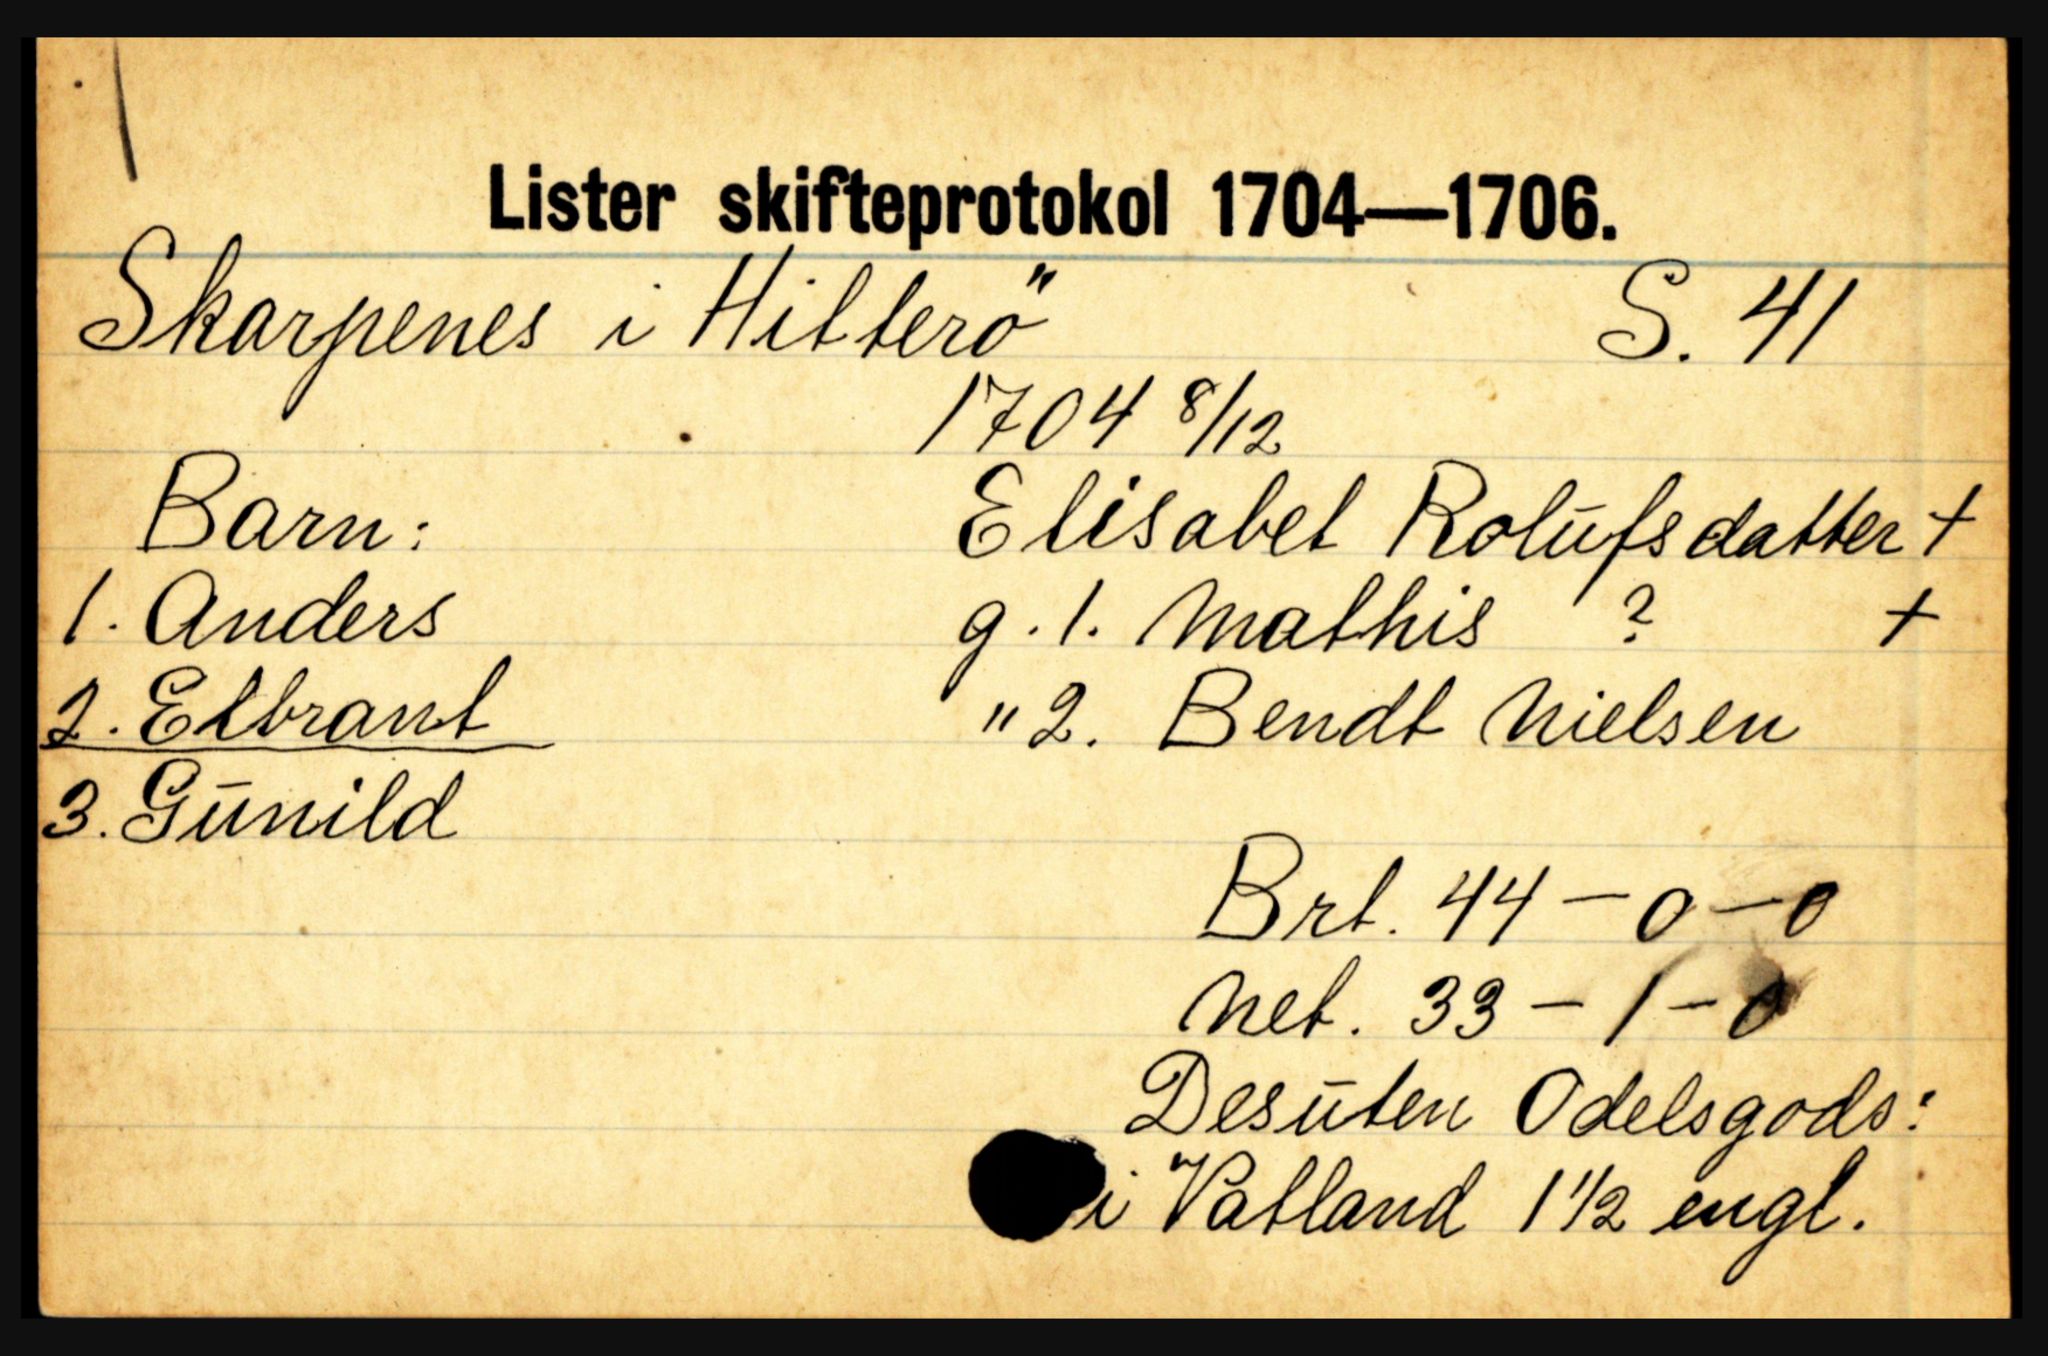 Lister skifteprotokol 1704—1706.
Skarpenes i Hitterö S. 41
1704 8/12
Barn: Elisabet Rolufsdatter +
1. Anders g. 1. Mathis ? +
2. Elbrant " 2. Bendt Nielsen
3. Gunild
Brt. 44 – 0 – 0
Net. 33 – 1 – 0
Desuten Odelsgods:
i Vatland 1 1/2 engl.